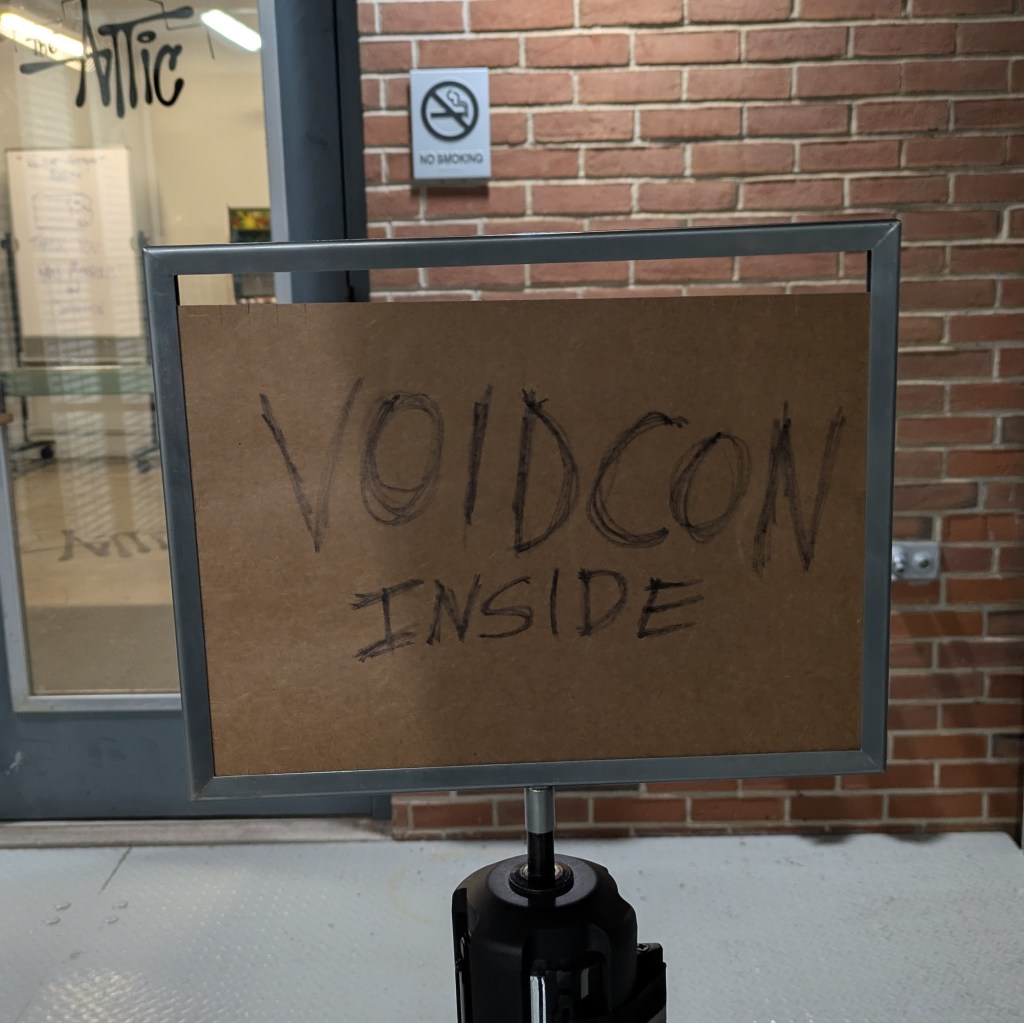 The
Attic
NO SMOKING
VOIDCON
INSIDE